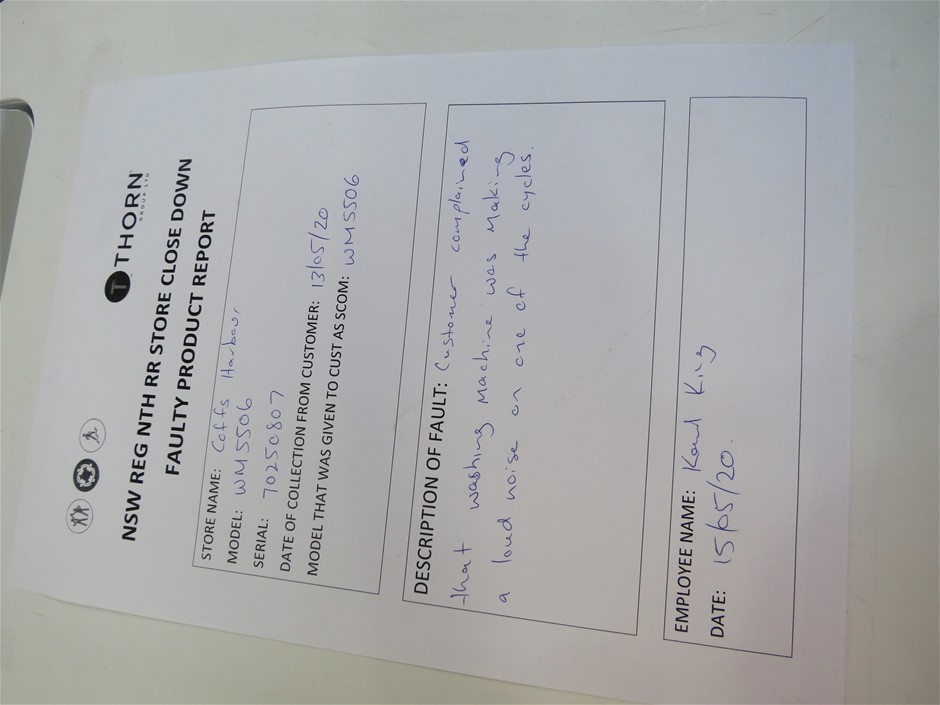 THORN
GROUP LTD
NSW REG NTH RR STORE CLOSE DOWN
FAULTY PRODUCT REPORT
STORE NAME: Coffs Harbour
MODEL: WM5506
SERIAL: 70250807
DATE OF COLLECTION FROM CUSTOMER: 13/05/20
MODEL THAT WAS GIVEN TO CUST AS SCOM: WM5506
DESCRIPTION OF FAULT: Customer complained
that washing Machine was Making
a loud noise on one of the cycles.
EMPLOYEE NAME: King
DATE: 15/05/20.